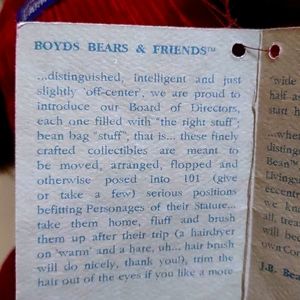 BOYDS BEARS & FRIENDS™
...distinguished, intelligent and just
slightly 'off-center', we are proud to
introduce our Board of Directors,
each one filled with "the right stuff";
bean bag "stuff", that is... these finely
crafted collectibles are meant to
be moved, arranged, flopped and
otherwise posed into 101 (give
or take a few) serious positions
befitting Personages of their Stature...
take them home, fluff and brush
them up after their trip (a hairdryer
on 'warm' and a hare, uh... hair brush
will do nicely, thank you!), trim the
hair out of the eyes if you like a more
"wide
half a
start h
...when
disting
Bean"
Livings
eccent
we kn
all, trea
will be
own Con
J.B. Bea